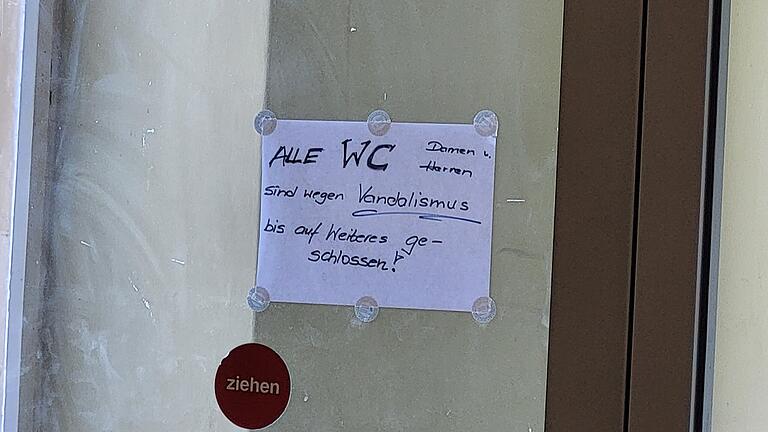 ALLE WC Damen u.
Herren
sind wegen Vandalismus
bis auf Weiteres ge-
schlossen!
ziehen